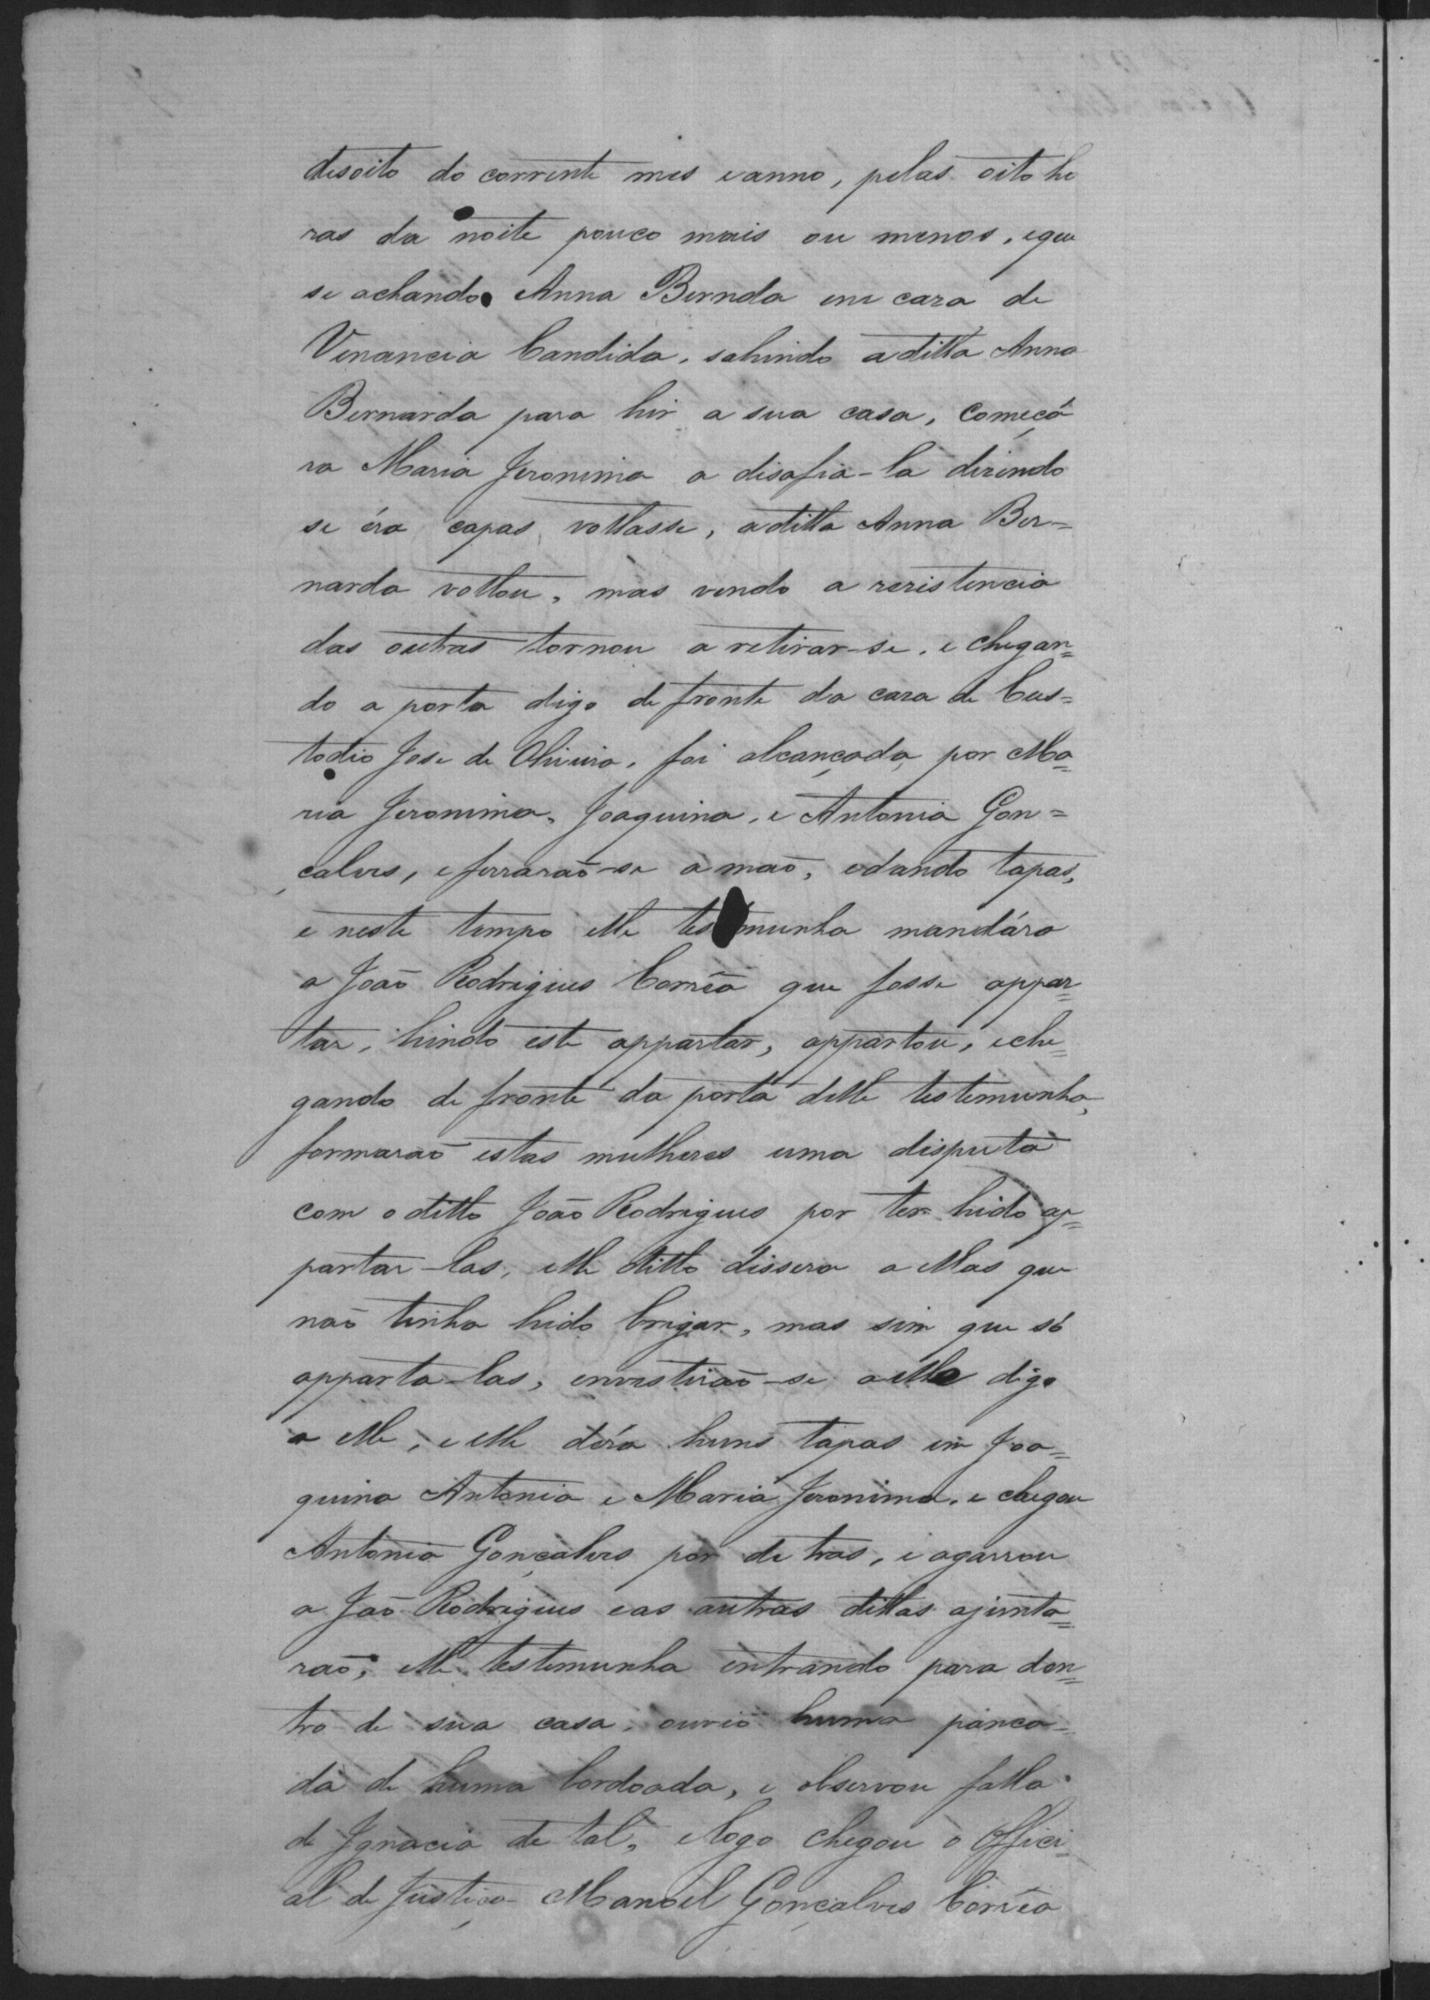 desoito do corrente mes e anno, pelas oito ho
ras da noite pouco mais ou menos, e que
se achando Anna Bernda em caza de
Venancia Candida, sahindo a ditta Anna
Bernarda para hir a sua casa, começá
ra Maria Jeronima a disafia-la dizendo
se éra capas voltasse, a ditta Anna Ber=
narda voltou, mas vendo a rezistencia
das outras tornou a retirar-se, e chegan=
do a porta digo de fronte da caza de Cus=
todio Jose de Oliveira, foi alcançada por Ma=
ria Jeronima, Joaquina, e Antonia Gon=
çalves, e ferrarão-se a mão, e dando tapas,
e neste tempo elle testemunha mandára
a João Rodrigues Corrêa que fosse appar=
tar, hindo este appartar, appartou, e che=
gando de fronte da porta delle testemunha,
formarão estas mulheres uma disputa
com o ditto João Rodrigues por ter hido ap=
partar-las, elle ditto dissera a ellas que
não tinha hido brigar, mas sim que só
apparta-las, envestirão-se a elle digo
a elle, e elle déra huns tapas em Joa=
quina Antonia e Maria Jeronima, e chegou
Antonia Gonçalves por de tras, e agarrou
a João Rodrigues e as outras dittas ajunta=
rão, elle testemunha entrando para den=
tro de sua casa, ouvio huma panca=
da de huma bordoada, e observou falla
de Ignacia de tal, e logo chegou o Offici
al de Justiça Manoel Gonçalves Corrêa